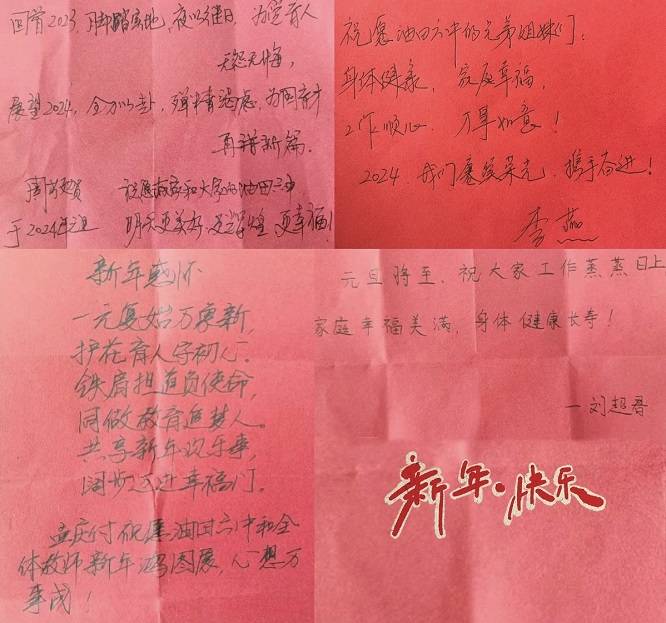 回首2023，脚踏实地，夜以继日，为党育人
无怨无悔，
展望2024，全力以赴，殚精竭虑，为国育才
再谱新篇。
祝愿 和大家的油田六中
于2024年元旦 明天更美好，更辉煌，更幸福！
祝愿油田六中的兄弟姐妹们：
身体健康，家庭幸福，
工作顺心，万事如意！
2024，我们赓续荣光，携手奋进！
李燕
新年感怀
一元复始万象新，
护花育人守初心。
铁肩担道负使命，
同做教育追梦人。
共享新年欢乐事，
阔步迈进幸福门。
孟庆付祝愿油田六中和全
体教师新年鸿图展，心想万
事成！
元旦将至，祝大家工作蒸蒸日上
家庭幸福美满，身体健康长寿！
—刘超君
新年·快乐